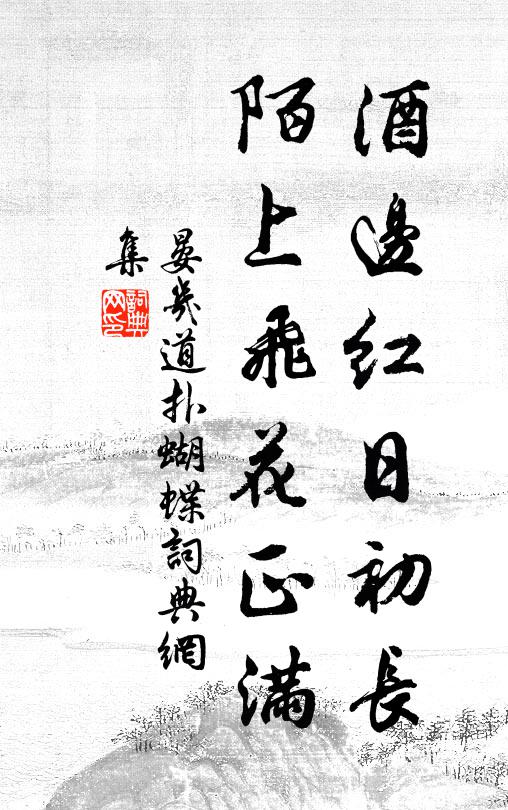 酒邊紅日初長
陌上飛花正滿
晏幾道扑蝴蝶詞典網
集
詞典網印